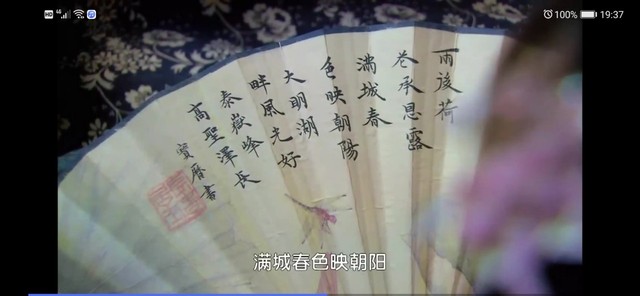 HD
100%
19:37
雨後荷
承恩露
滿城春
色映朝陽
大明湖
畔風光好
泰嶽峰
高聖澤長
寶曆書
满城春色映朝阳